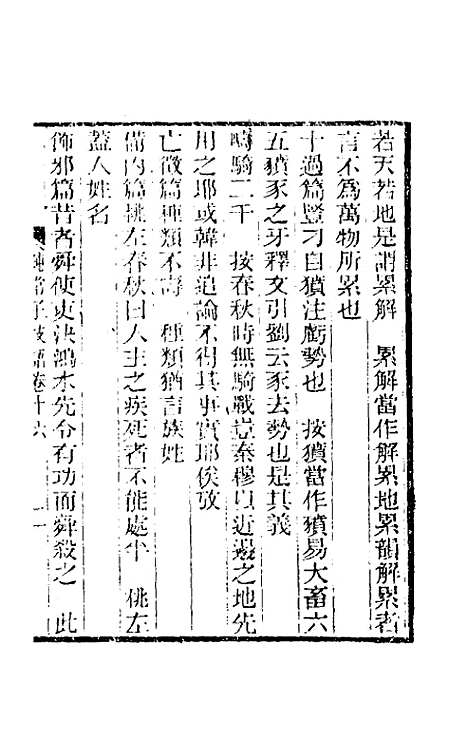 若天若地是謂累解　累解當作解累地累韻解累者
言不爲萬物所累也
十過篇豎刁自獖注虧勢也　按獖當作豶易大畜六
五豶豕之牙釋文引劉云豕去勢也是其義
疇騎二千　按春秋時無騎戰豈秦穆以近邊之地先
用之耶或韓非追論不得其事實耶俟攷
亡徵篇種類不壽　種類猶言族姓
備內篇桃左春秋曰人主之疾死者不能處半　桃左
蓋人姓名
飾邪篇昔者舜使吏決鴻水先令有功而舜殺之　此
子校語卷十六